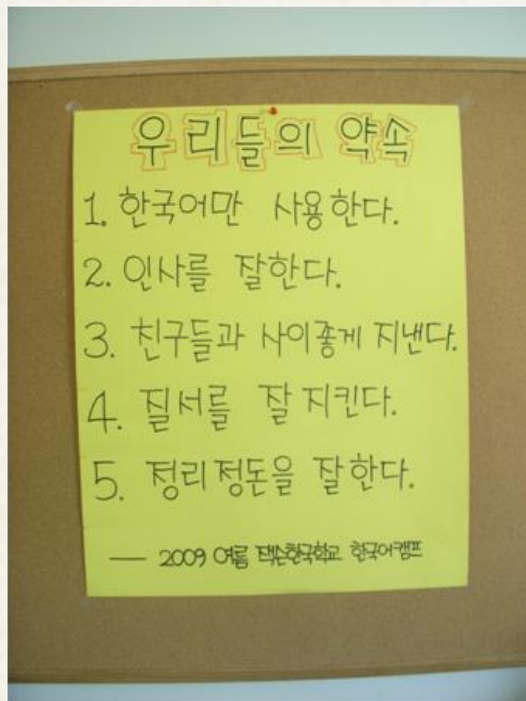 우리들의 약속
1. 한국어만 사용한다.
2. 인사를 잘한다.
3. 친구들과 사이좋게 지낸다.
4. 질서를 잘 지킨다.
5. 정리정돈을 잘한다.
— 2009 여름 잭슨한국학교 한국어캠프